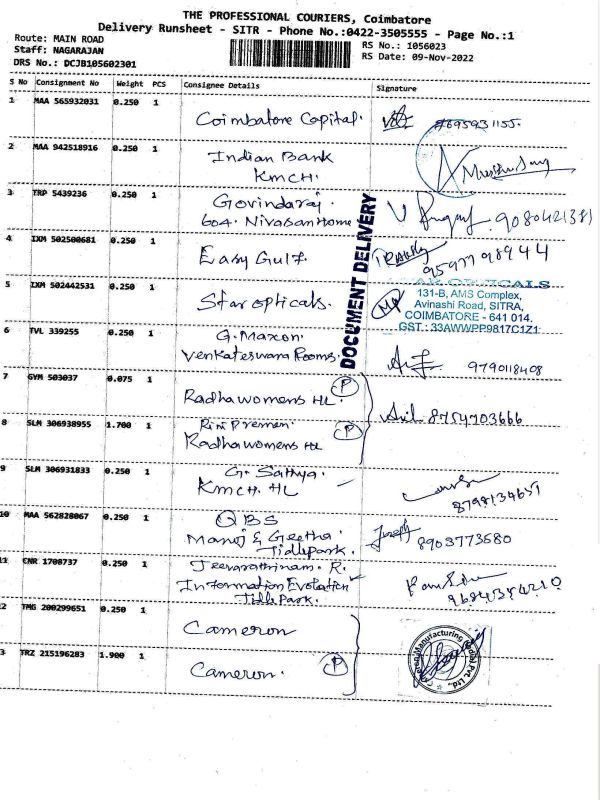 THE PROFESSIONAL COURIERS, Coimbatore
Delivery Runsheet - SITR - Phone No.:0422-3505555 - Page No.:1
Route: MAIN ROAD
Staff: NAGARAJAN
DRS No.: DCJB105602301
RS No.: 1056023
RS Date: 09-Nov-2022
S No Consignment No Weight PCS Consignee Details Signature
1 MAA 565932031 0.250 1 Coimbatore Capital.
2 MAA 942518916 0.250 1 Indian Bank
KMCH.
3 TRP 5439236 0.250 1 Govindaraj. 9080421381
604. Nivasan Home
DOCUMENT DELIVERY
4 IXM 502500681 0.250 1 Easy Gulf. 9597798944
5 IXM 502442531 0.250 1 Star opticals.
131-B, AMS Complex,
Avinashi Road, SITRA,
COIMBATORE - 641 014.
GST : 33AWWPP9817C1Z1
6 TVL 339255 0.250 1 G. Maxon.
Venkateswara Rooms. 9790118408
7 GYM 503037 0.075 1 Radha womens HL P
8 SLM 306938955 1.700 1 Rini Premen. P
Radha womens HL
Anil 8754703666
9 SLM 306931833 0.250 1 G. Sathya.
KMCH. HL
8798134651
10 MAA 562828067 0.250 1 QBS
Manoj & Geetha. Joseph 8903773680
Tidle park.
11 CNR 1708737 0.250 1 Jeevarathinam. R.
Information Evolution
Tidle Park.
9684354210
2 TMG 200299651 0.250 1 Cameron
3 TRZ 215196283 1.900 1 Cameron. P
Manufacturing (India) Pvt. Ltd.